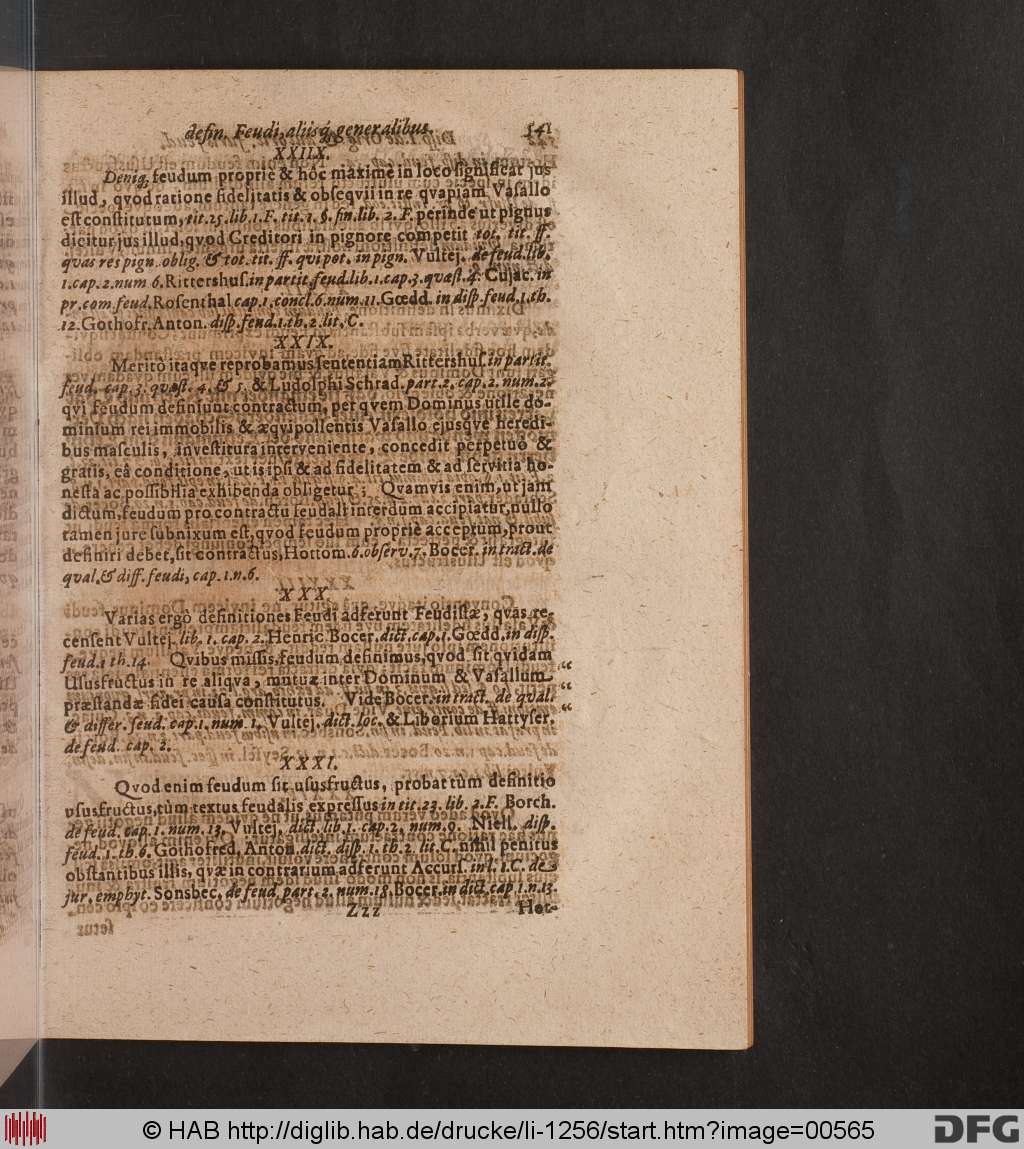 defin. Feudi, aliisq́, generalibus. 541
XXIIX.
Deniq, feudum propriè & hôc maximè in loco significat jus
illud, qvod ratione fidelitatis & obseqvii in re qvapiam Vasallo
est constitutum, tit. 25. lib. 1. F. tit. 1. §. fin. lib. 2. F. perinde ut pignus
dicitur jus illud, qvod Creditori in pignore competit tot. tit. ff.
qvas res pign. oblig. & tot. tit. ff. qvi pot. in pign. Vultej. de feud. lib.
1. cap. 2. num 6. Rittershus. in partit. feud. lib. 1. cap. 3. qvæst. 4. Cujac. in
pr. com. feud. Rosenthal cap. 1. concl. 6. num. 11. Gœdd. in disp. feud. 1. th.
12. Gothofr. Anton. disp. feud. 1. th. 2. lit. C.
XXIX.
Meritò itaqve reprobamus sententiam Rittershus. in partit.
feud. cap. 3. qvæst. 4. & 5. & Ludolphi Schrad. part. 2. cap. 2. num. 2.
qvi feudum definiunt contractum, per qvem Dominus utile do-
minium rei immobilis & æqvipollentis Vasallo ejusqve heredi-
bus masculis, investitura interveniente, concedit perpetuò &
gratis, eâ conditione, ut is ipsi & ad fidelitatem & ad servitia ho-
nesta ac possibilia exhibenda obligetur; Qvamvis enim, ut jam
dictum, feudum pro contractu feudali interdum accipiatur, nullo
tamen jure subnixum est, qvod feudum propriè acceptum, prout
definiri debet, sit contractus, Hottom. 6. observ. 7. Bocer. in tract. de
qval. & diff. feudi, cap. 1. n. 6.
XXX.
Varias ergò definitiones Feudi adferunt Feudistæ, qvas re-
censent Vultej. lib. 1. cap. 2. Henric. Bocer. dict. cap. 1. Gœdd. in disp.
feud. 1 th. 14. Qvibus missis, feudum definimus, qvod sit qvidam
Ususfructus in re aliqva, mutuæ inter Dominum & Vasallum “
præstandæ fidei causa constitutus. Vide Bocer. in tract. de qval. “
& differ. feud. cap. 1. num. 1. Vultej. dict. loc. & Liborium Hattyser. “
de feud. cap. 2.
XXXI.
Qvod enim feudum sit ususfructus, probat tùm definitio
ususfructus, tùm textus feudalis expressus in tit. 23. lib. 2. F. Borch.
de feud. cap. 1. num. 13. Vultej. dict. lib. 1. cap. 2. num. 9. Niell. disp.
feud. 1. th. 6. Gothofred. Anton. dict. disp. 1. th. 2. lit. C. nihil penitus
obstantibus illis, qvæ in contrarium adferunt Accurs. in l. 1. C. de
jur. emphyt. Sonsbec. de feud. part. 2. num. 18. Bocer. in dict. cap. 1. n. 13.
Zzz Hot-
© HAB http://diglib.hab.de/drucke/li-1256/start.htm?image=00565
DFG